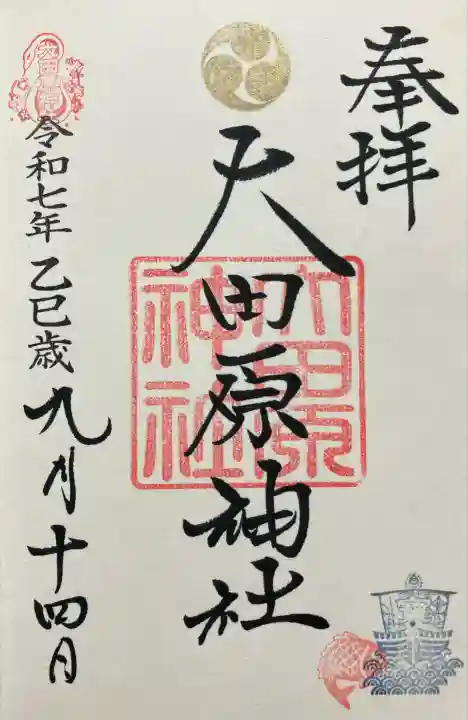 奉拝
大田原神社
大田原
神社
令和七年乙巳歳九月十四日